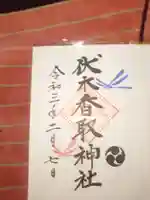 伏木香取神社
令和三年二月七日